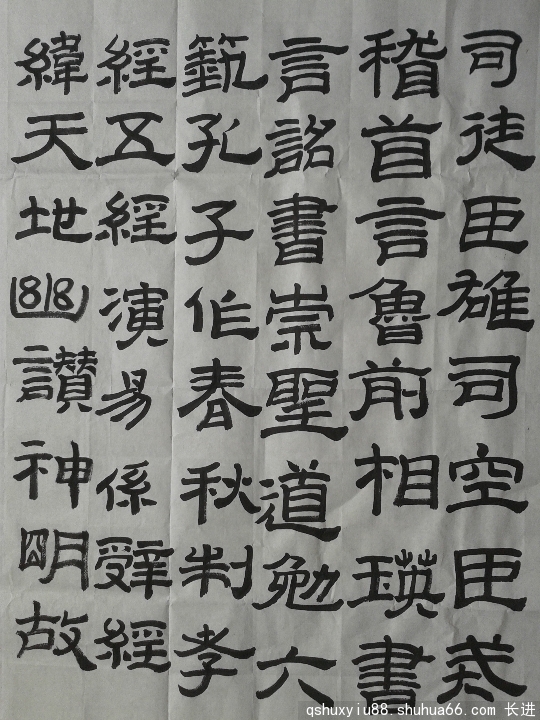 司徒臣雄司空臣戒
稽首言魯前相瑛書
言詔書崇聖道勉六
蓺孔子作春秋制孝
經五經演易係辭經
緯天地幽讚神明故
qshuxyiu88.shuhua66.com 长进